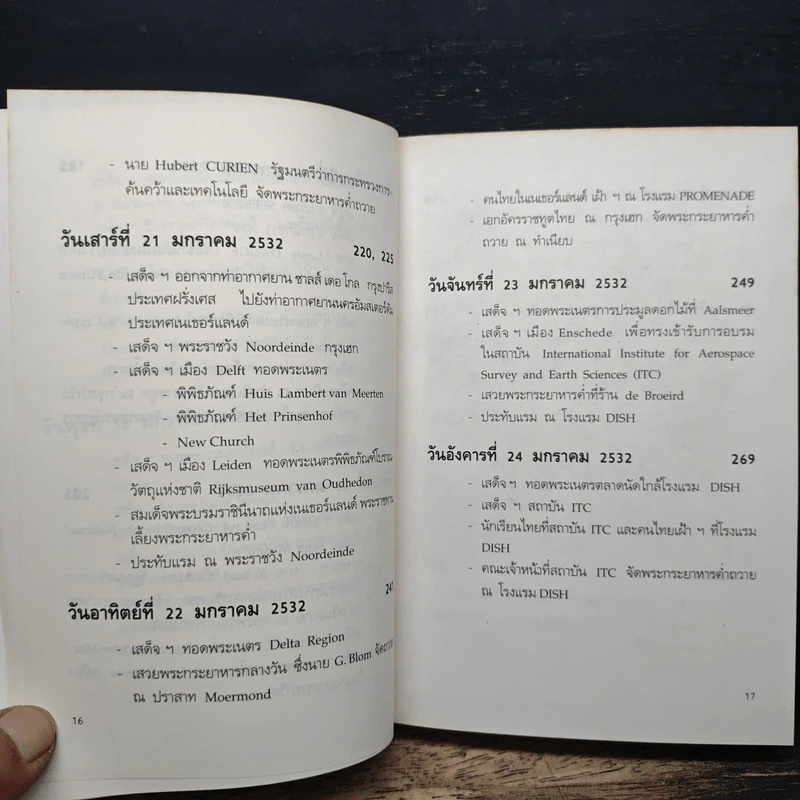 - นาย Hubert CURIEN รัฐมนตรีว่าการกระทรวงการ-
ค้นคว้าและเทคโนโลยี จัดพระกระยาหารค่ำถวาย
วันเสาร์ที่ 21 มกราคม 2532
220, 225
- เสด็จ ฯ ออกจากท่าอากาศยาน ชาลส์ เดอ โกล กรุงปารีส
ประเทศฝรั่งเศส ไปยังท่าอากาศยานนครอัมสเตอร์ดัม
ประเทศเนเธอร์แลนด์
- เสด็จ ฯ พระราชวัง Noordeinde กรุงเฮก
- เสด็จ ฯ เมือง Delft ทอดพระเนตร
- พิพิธภัณฑ์ Huis Lambert van Meerten
- พิพิธภัณฑ์ Het Prinsenhof
- New Church
- เสด็จ ฯ เมือง Leiden ทอดพระเนตรพิพิธภัณฑ์โบราณ
วัตถุแห่งชาติ Rijksmuseum van Oudhedon
- สมเด็จพระบรมราชินีนาถแห่งเนเธอร์แลนด์ พระราชทาน
เลี้ยงพระกระยาหารค่ำ
- ประทับแรม ณ พระราชวัง Noordeinde
วันอาทิตย์ที่ 22 มกราคม 2532
- เสด็จ ฯ ทอดพระเนตร Delta Region
- เสวยพระกระยาหารกลางวัน ซึ่งนาย G. Blom จัดถวาย
ณ ปราสาท Moermond
16
- คนไทยในเนเธอร์แลนด์ เฝ้า ฯ ณ โรงแรม PROMENADE
- เอกอัครราชทูตไทย ณ กรุงเฮก จัดพระกระยาหารค่ำ
ถวาย ณ ทำเนียบ
วันจันทร์ที่ 23 มกราคม 2532 249
- เสด็จ ฯ ทอดพระเนตรการประมูลดอกไม้ที่ Aalsmeer
- เสด็จ ฯ เมือง Enschede เพื่อทรงเข้ารับการอบรม
ในสถาบัน International Institute for Aerospace
Survey and Earth Sciences (ITC)
- เสวยพระกระยาหารค่ำที่ร้าน de Broeird
- ประทับแรม ณ โรงแรม DISH
วันอังคารที่ 24 มกราคม 2532 269
- เสด็จ ฯ ทอดพระเนตรตลาดนัดใกล้โรงแรม DISH
- เสด็จ ฯ สถาบัน ITC
- นักเรียนไทยที่สถาบัน ITC และคนไทยเฝ้า ฯ ที่โรงแรม
DISH
- คณะเจ้าหน้าที่สถาบัน ITC จัดพระกระยาหารค่ำถวาย
ณ โรงแรม DISH
17